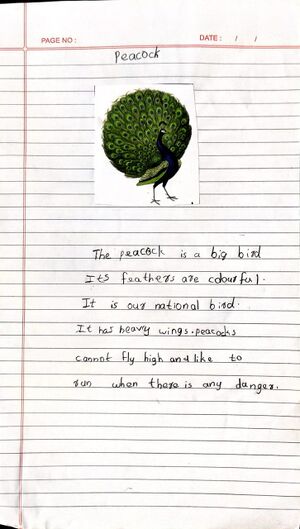 PAGE NO :
DATE : / /
Peacock
The peacock is a big bird
Its feathers are colourful.
It is our national bird.
It has heavy wings. peacocks
cannot fly high and like to
run when there is any danger.